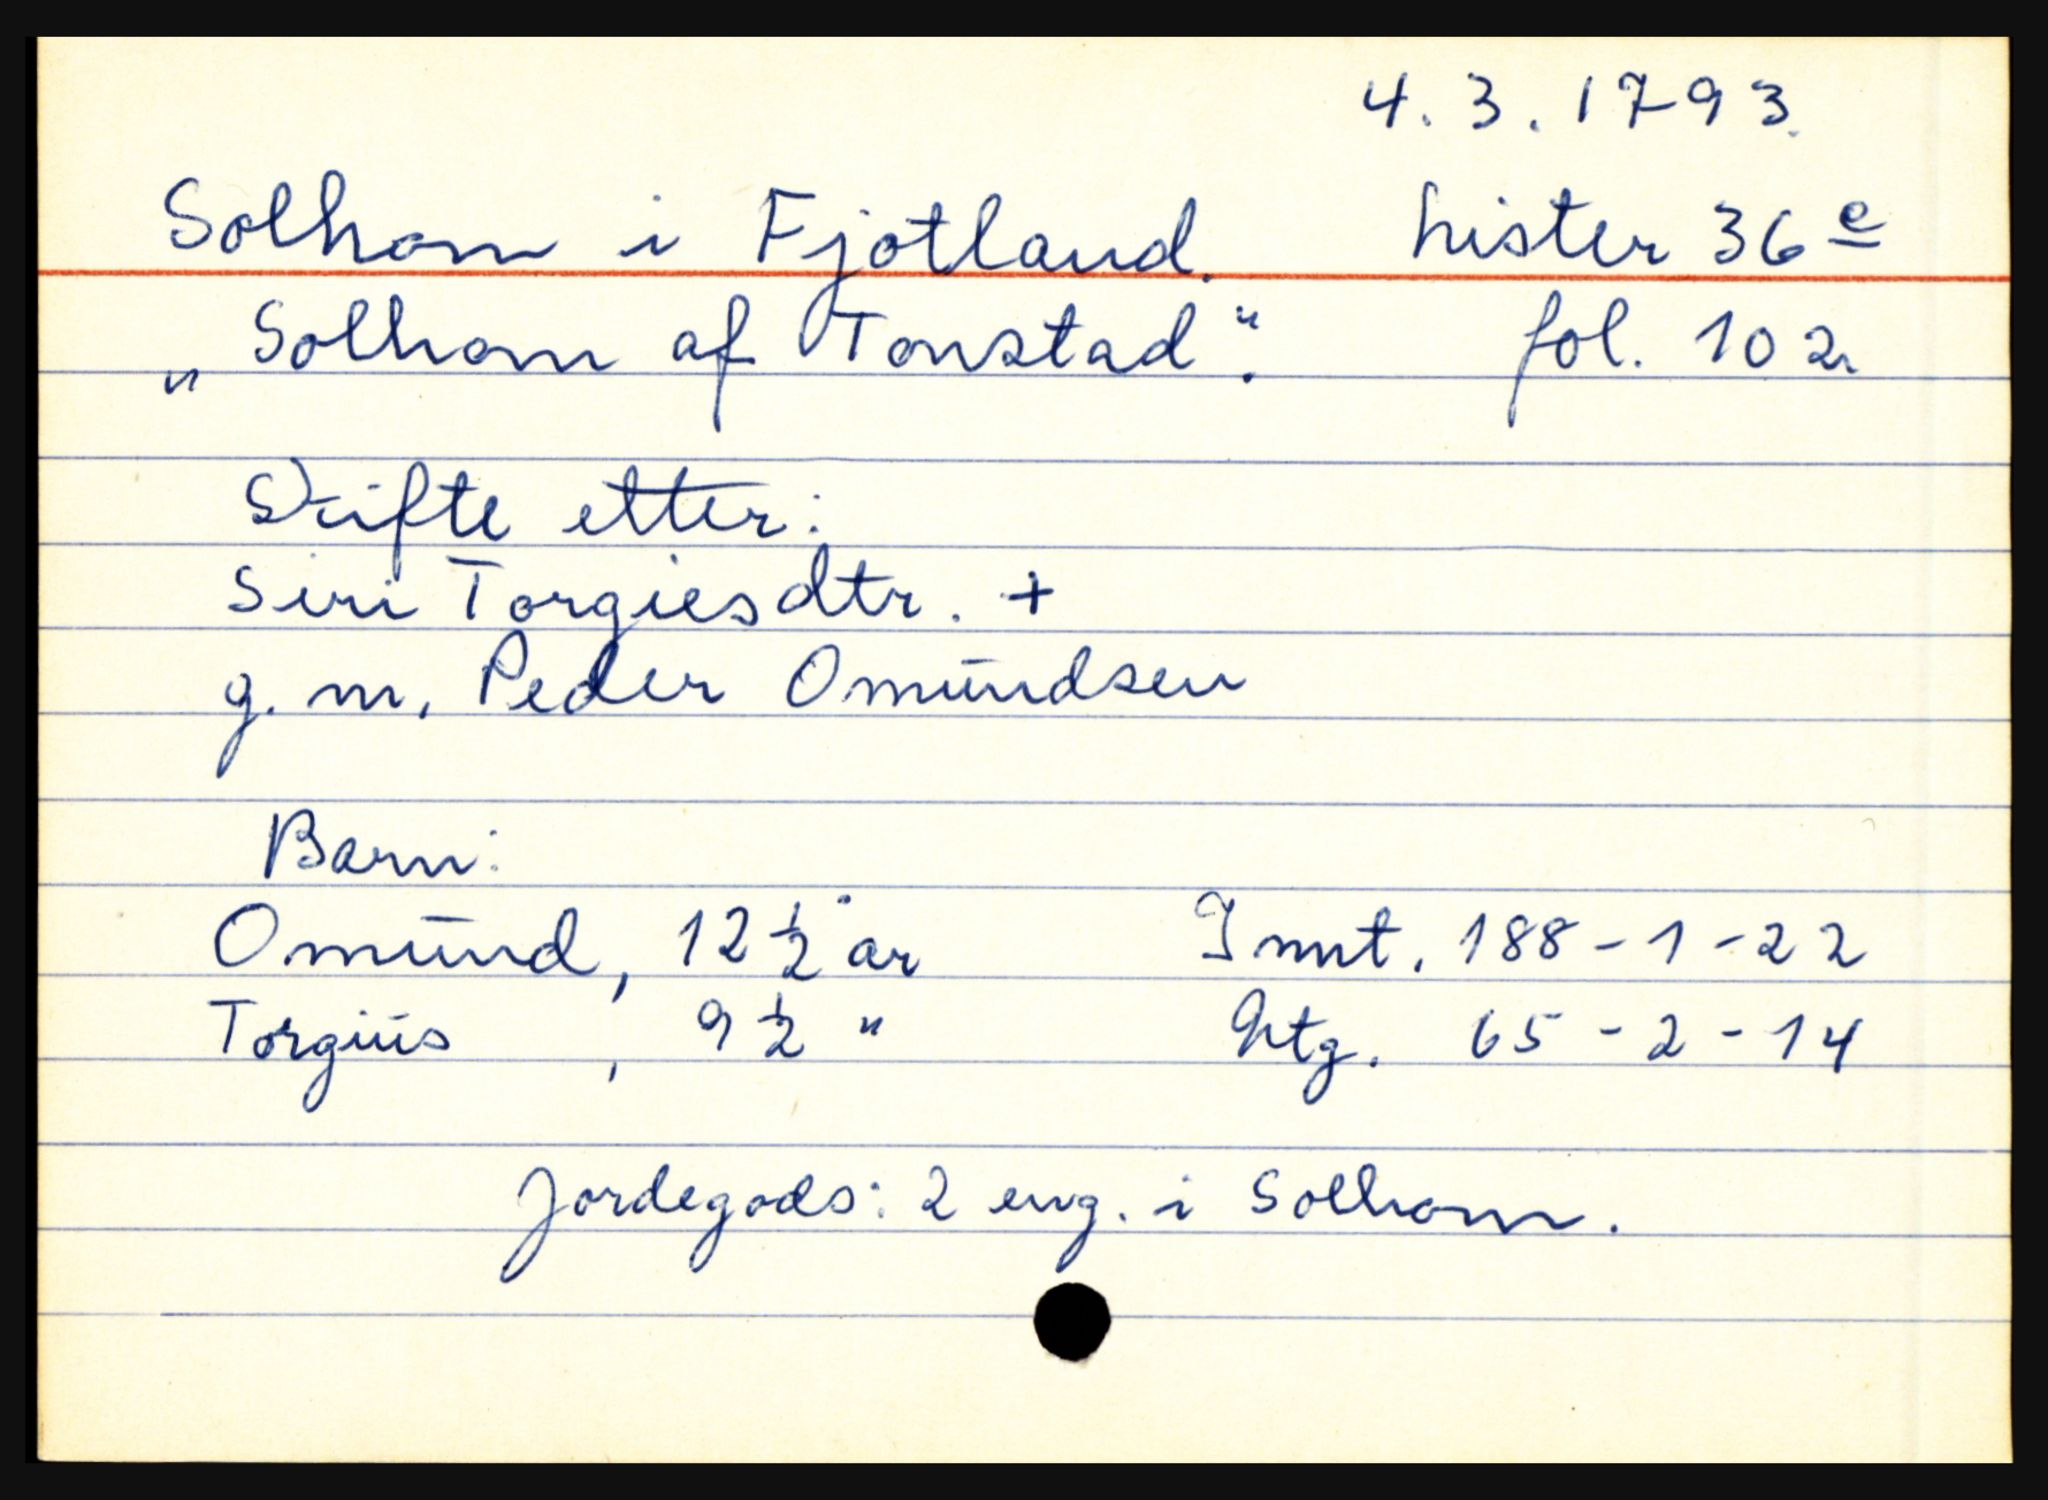 4.3.1793.
Solhom i Fjotland. Lister 36 e
„Solhom af Tonstad“. fol. 102
Skifte etter:
Siri Torgiesdtr. +
g. m. Peder Omundsen
Barn:
Omund, 12 1/2 år Innt. 188-1-22
Torgius, 9 1/2 " Utg. 65-2-14
Jordegods: 2 eng. i Solhom.